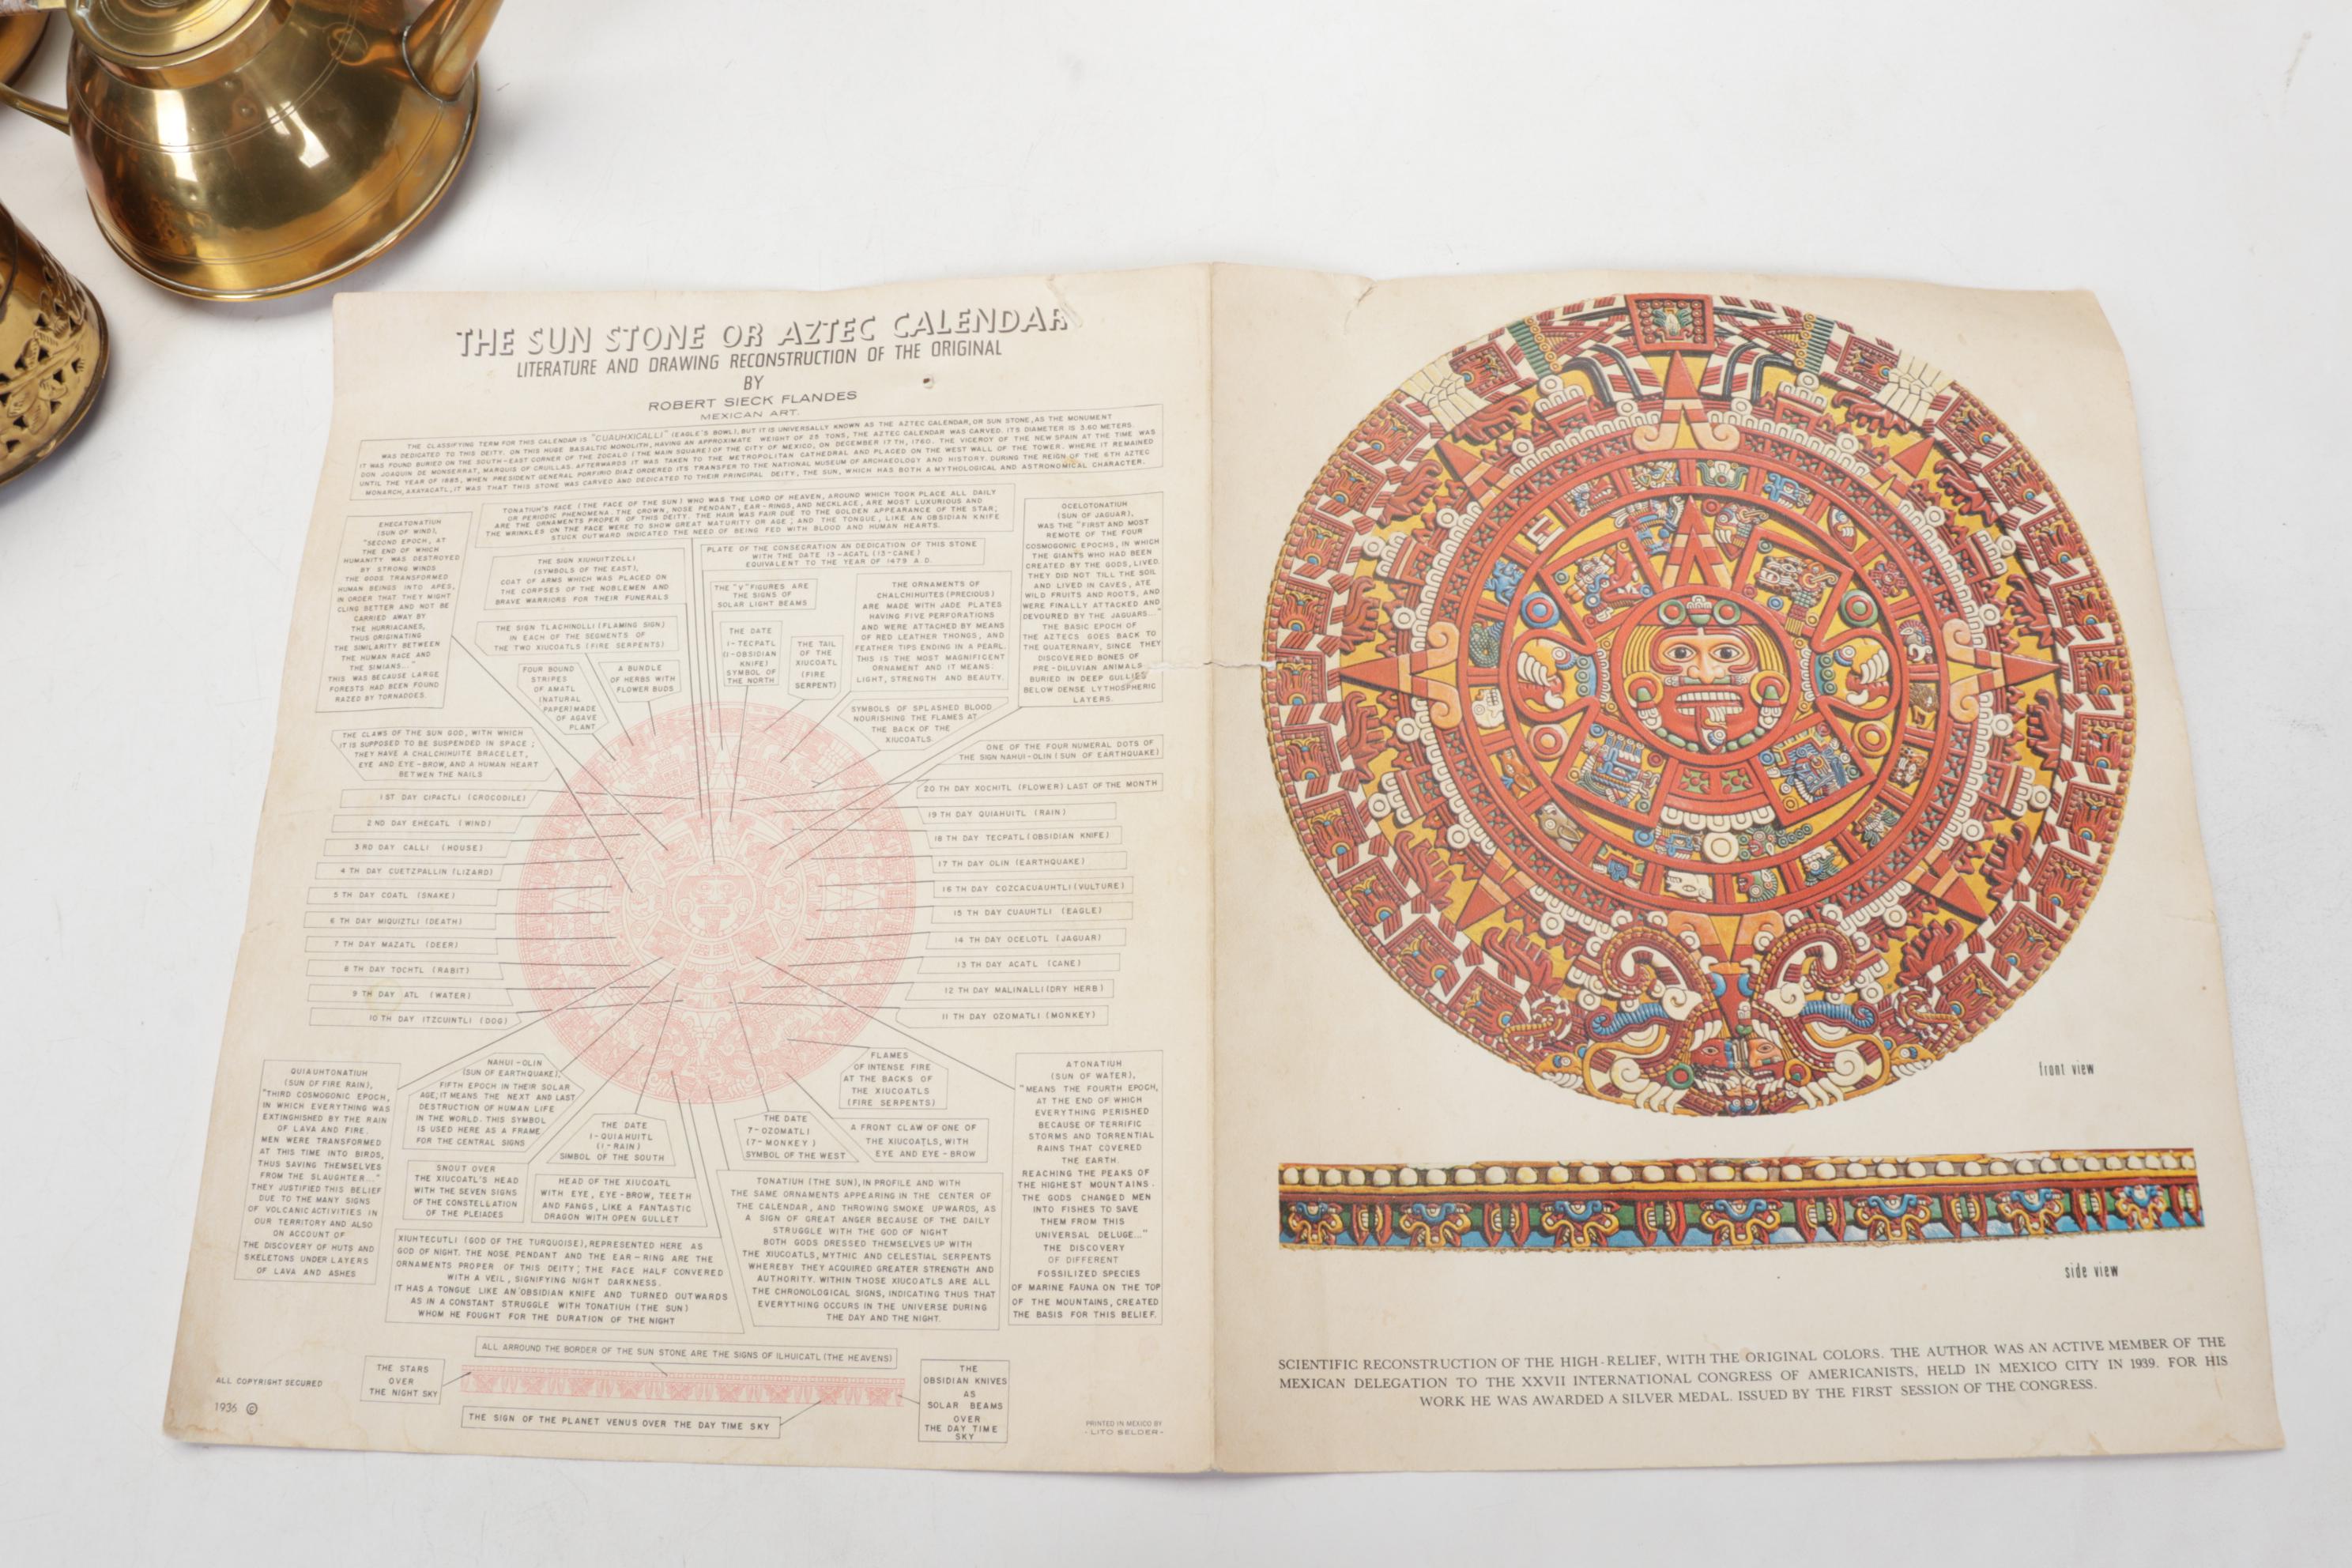 THE SUN STONE OR AZTEC CALENDAR
LITERATURE AND DRAWING RECONSTRUCTION OF THE ORIGINAL
BY
ROBERT SIECK FLANDES
MEXICAN ART.
THE CLASSIFYING TERM FOR THIS CALENDAR IS "CUAUHXICALLI" (EAGLE'S BOWL). BUT IT IS UNIVERSALLY KNOWN AS THE AZTEC CALENDAR, OR SUN STONE, AS THE MONUMENT
WAS DEDICATED TO THIS DEITY. ON THIS HUGE BASALTIC MONOLITH, HAVING AN APPROXIMATE WEIGHT OF 25 TONS, THE AZTEC CALENDAR WAS CARVED. ITS DIAMETER IS 3.60 METERS
IT WAS FOUND BURIED ON THE SOUTH-EAST CORNER OF THE ZOCALO (THE MAIN SQUARE) OF THE CITY OF MEXICO, ON DECEMBER 17 TH, 1760. THE VICEROY OF THE NEW SPAIN AT THE TIME WAS
DON JOAQUIN DE MONSERRAT, MARQUIS OF CRUILLAS. AFTERWARDS IT WAS TAKEN TO THE METROPOLITAN CATHEDRAL AND PLACED ON THE WEST WALL OF THE TOWER. WHERE IT REMAINED
UNTIL THE YEAR OF 1885, WHEN PRESIDENT GENERAL PORFIRIO DIAZ ORDERED ITS TRANSFER TO THE NATIONAL MUSEUM OF ARCHAEOLOGY AND HISTORY. DURING THE REIGN OF THE 6TH AZTEC
MONARCH, AXAYACATL, IT WAS THAT THIS STONE WAS CARVED AND DEDICATED TO THEIR PRINCIPAL DEITY, THE SUN, WHICH HAS BOTH A MYTHOLOGICAL AND ASTRONOMICAL CHARACTER.
TONATIUH'S FACE (THE FACE OF THE SUN) WHO WAS THE LORD OF HEAVEN, AROUND WHICH TOOK PLACE ALL DAILY
OR PERIODIC PHENOMENA. THE CROWN, NOSE PENDANT, EAR-RINGS, AND NECKLACE, ARE MOST LUXURIOUS AND
ARE THE ORNAMENTS PROPER OF THIS DEITY. THE HAIR WAS FAIR DUE TO THE GOLDEN APPEARANCE OF THE STAR;
THE WRINKLES ON THE FACE WERE TO SHOW GREAT MATURITY OR AGE; AND THE TONGUE, LIKE AN OBSIDIAN KNIFE
STUCK OUTWARD INDICATED THE NEED OF BEING FED WITH BLOOD AND HUMAN HEARTS.
EHECATONATIUH
(SUN OF WIND),
"SECOND EPOCH, AT
THE END OF WHICH
HUMANITY WAS DESTROYED
BY STRONG WINDS
THE GODS TRANSFORMED
HUMAN BEINGS INTO APES,
IN ORDER THAT THEY MIGHT
CLING BETTER AND NOT BE
CARRIED AWAY BY
THE HURRIACANES,
THUS ORIGINATING
THE SIMILARITY BETWEEN
THE HUMAN RACE AND
THE SIMIANS..."
THIS WAS BECAUSE LARGE
FORESTS HAD BEEN FOUND
RAZED BY TORNADOES.
THE SIGN XIUHUITZOLLI
(SYMBOLS OF THE EAST),
COAT OF ARMS WHICH WAS PLACED ON
THE CORPSES OF THE NOBLEMEN AND
BRAVE WARRIORS FOR THEIR FUNERALS
PLATE OF THE CONSECRATION AN DEDICATION OF THIS STONE
WITH THE DATE 13-ACATL (13-CANE)
EQUIVALENT TO THE YEAR OF 1479 A.D.
OCELOTONATIUH
(SUN OF JAGUAR),
WAS THE "FIRST AND MOST
REMOTE OF THE FOUR
COSMOGONIC EPOCHS, IN WHICH
THE GIANTS WHO HAD BEEN
CREATED BY THE GODS, LIVED.
THEY DID NOT TILL THE SOIL
AND LIVED IN CAVES, ATE
WILD FRUITS AND ROOTS, AND
WERE FINALLY ATTACKED AND
DEVOURED BY THE JAGUARS..."
THE BASIC EPOCH OF
THE AZTECS GOES BACK TO
THE QUATERNARY, SINCE THEY
DISCOVERED BONES OF
PRE-DILUVIAN ANIMALS
BURIED IN DEEP GULLIES
BELOW DENSE LYTHOSPHERIC
LAYERS.
THE SIGN TLACHINOLLI (FLAMING SIGN)
IN EACH OF THE SEGMENTS OF
THE TWO XIUCOATLS (FIRE SERPENTS)
THE "V" FIGURES ARE
THE SIGNS OF
SOLAR LIGHT BEAMS
THE ORNAMENTS OF
CHALCHIHUITES (PRECIOUS)
ARE MADE WITH JADE PLATES
HAVING FIVE PERFORATIONS
AND WERE ATTACHED BY MEANS
OF RED LEATHER THONGS, AND
FEATHER TIPS ENDING IN A PEARL.
THIS IS THE MOST MAGNIFICENT
ORNAMENT AND IT MEANS:
LIGHT, STRENGTH AND BEAUTY.
FOUR BOUND
STRIPES
OF AMATL
(NATURAL
PAPER) MADE
OF AGAVE
PLANT
A BUNDLE
OF HERBS WITH
FLOWER BUDS
THE DATE
1-TECPATL
(1-OBSIDIAN
KNIFE)
SYMBOL OF
THE NORTH
THE TAIL
OF THE
XIUCOATL
(FIRE
SERPENT)
SYMBOLS OF SPLASHED BLOOD
NOURISHING THE FLAMES AT
THE BACK OF THE
XIUCOATLS.
THE CLAWS OF THE SUN GOD, WITH WHICH
IT IS SUPPOSED TO BE SUSPENDED IN SPACE;
THEY HAVE A CHALCHIHUITE BRACELET,
EYE AND EYE-BROW, AND A HUMAN HEART
BETWEN THE NAILS
ONE OF THE FOUR NUMERAL DOTS OF
THE SIGN NAHUI-OLIN (SUN OF EARTHQUAKE)
1 ST DAY CIPACTLI (CROCODILE)
2 ND DAY EHECATL (WIND)
3 RD DAY CALLI (HOUSE)
4 TH DAY CUETZPALLIN (LIZARD)
5 TH DAY COATL (SNAKE)
6 TH DAY MIQUIZTLI (DEATH)
7 TH DAY MAZATL (DEER)
8 TH DAY TOCHTL (RABIT)
9 TH DAY ATL (WATER)
10 TH DAY ITZCUINTLI (DOG)
20 TH DAY XOCHITL (FLOWER) LAST OF THE MONTH
19 TH DAY QUIAHUITL (RAIN)
18 TH DAY TECPATL (OBSIDIAN KNIFE)
17 TH DAY OLIN (EARTHQUAKE)
16 TH DAY COZCACUAUHTLI (VULTURE)
15 TH DAY CUAUHTLI (EAGLE)
14 TH DAY OCELOTL (JAGUAR)
13 TH DAY ACATL (CANE)
12 TH DAY MALINALLI (DRY HERB)
11 TH DAY OZOMATLI (MONKEY)
QUIAUHTONATIUH
(SUN OF FIRE RAIN),
"THIRD COSMOGONIC EPOCH,
IN WHICH EVERYTHING WAS
EXTINGHISHED BY THE RAIN
OF LAVA AND FIRE.
MEN WERE TRANSFORMED
AT THIS TIME INTO BIRDS,
THUS SAVING THEMSELVES
FROM THE SLAUGHTER..."
THEY JUSTIFIED THIS BELIEF
DUE TO THE MANY SIGNS
OF VOLCANIC ACTIVITIES IN
OUR TERRITORY AND ALSO
ON ACCOUNT OF
THE DISCOVERY OF HUTS AND
SKELETONS UNDER LAYERS
OF LAVA AND ASHES
NAHUI-OLIN
(SUN OF EARTHQUAKE),
FIFTH EPOCH IN THEIR SOLAR
AGE; IT MEANS THE NEXT AND LAST
DESTRUCTION OF HUMAN LIFE
IN THE WORLD. THIS SYMBOL
IS USED HERE AS A FRAME
FOR THE CENTRAL SIGNS
THE DATE
1-QUIAHUITL
(1-RAIN)
SIMBOL OF THE SOUTH
THE DATE
7-OZOMATLI
(7-MONKEY)
SYMBOL OF THE WEST
FLAMES
OF INTENSE FIRE
AT THE BACKS OF
THE XIUCOATLS
(FIRE SERPENTS)
A FRONT CLAW OF ONE OF
THE XIUCOATLS, WITH
EYE AND EYE-BROW
ATONATIUH
(SUN OF WATER),
"MEANS THE FOURTH EPOCH,
AT THE END OF WHICH
EVERYTHING PERISHED
BECAUSE OF TERRIFIC
STORMS AND TORRENTIAL
RAINS THAT COVERED
THE EARTH.
REACHING THE PEAKS OF
THE HIGHEST MOUNTAINS.
THE GODS CHANGED MEN
INTO FISHES TO SAVE
THEM FROM THIS
UNIVERSAL DELUGE..."
THE DISCOVERY
OF DIFFERENT
FOSSILIZED SPECIES
OF MARINE FAUNA ON THE TOP
OF THE MOUNTAINS, CREATED
THE BASIS FOR THIS BELIEF.
SNOUT OVER
THE XIUCOATL'S HEAD
WITH THE SEVEN SIGNS
OF THE CONSTELLATION
OF THE PLEIADES
HEAD OF THE XIUCOATL
WITH EYE, EYE-BROW, TEETH
AND FANGS, LIKE A FANTASTIC
DRAGON WITH OPEN GULLET
TONATIUH (THE SUN), IN PROFILE AND WITH
THE SAME ORNAMENTS APPEARING IN THE CENTER OF
THE CALENDAR, AND THROWING SMOKE UPWARDS, AS
A SIGN OF GREAT ANGER BECAUSE OF THE DAILY
STRUGGLE WITH THE GOD OF NIGHT
BOTH GODS DRESSED THEMSELVES UP WITH
THE XIUCOATLS, MYTHIC AND CELESTIAL SERPENTS
WHEREBY THEY ACQUIRED GREATER STRENGTH AND
AUTHORITY. WITHIN THOSE XIUCOATLS ARE ALL
THE CHRONOLOGICAL SIGNS, INDICATING THUS THAT
EVERYTHING OCCURS IN THE UNIVERSE DURING
THE DAY AND THE NIGHT.
XIUHTECUTLI (GOD OF THE TURQUOISE), REPRESENTED HERE AS
GOD OF NIGHT. THE NOSE PENDANT AND THE EAR-RING ARE THE
ORNAMENTS PROPER OF THIS DEITY; THE FACE HALF CONVERED
WITH A VEIL, SIGNIFYING NIGHT DARKNESS.
IT HAS A TONGUE LIKE AN OBSIDIAN KNIFE AND TURNED OUTWARDS
AS IN A CONSTANT STRUGGLE WITH TONATIUH (THE SUN)
WHOM HE FOUGHT FOR THE DURATION OF THE NIGHT
ALL ARROUND THE BORDER OF THE SUN STONE ARE THE SIGNS OF ILHUICATL (THE HEAVENS)
THE STARS
OVER
THE NIGHT SKY
THE
OBSIDIAN KNIVES
AS
SOLAR BEAMS
OVER
THE DAY TIME
SKY
THE SIGN OF THE PLANET VENUS OVER THE DAY TIME SKY
ALL COPYRIGHT SECURED
1936 ©
PRINTED IN MEXICO BY
- LITO SELDER -
front view
side view
SCIENTIFIC RECONSTRUCTION OF THE HIGH-RELIEF, WITH THE ORIGINAL COLORS. THE AUTHOR WAS AN ACTIVE MEMBER OF THE
MEXICAN DELEGATION TO THE XXVII INTERNATIONAL CONGRESS OF AMERICANISTS, HELD IN MEXICO CITY IN 1939. FOR HIS
WORK HE WAS AWARDED A SILVER MEDAL. ISSUED BY THE FIRST SESSION OF THE CONGRESS.